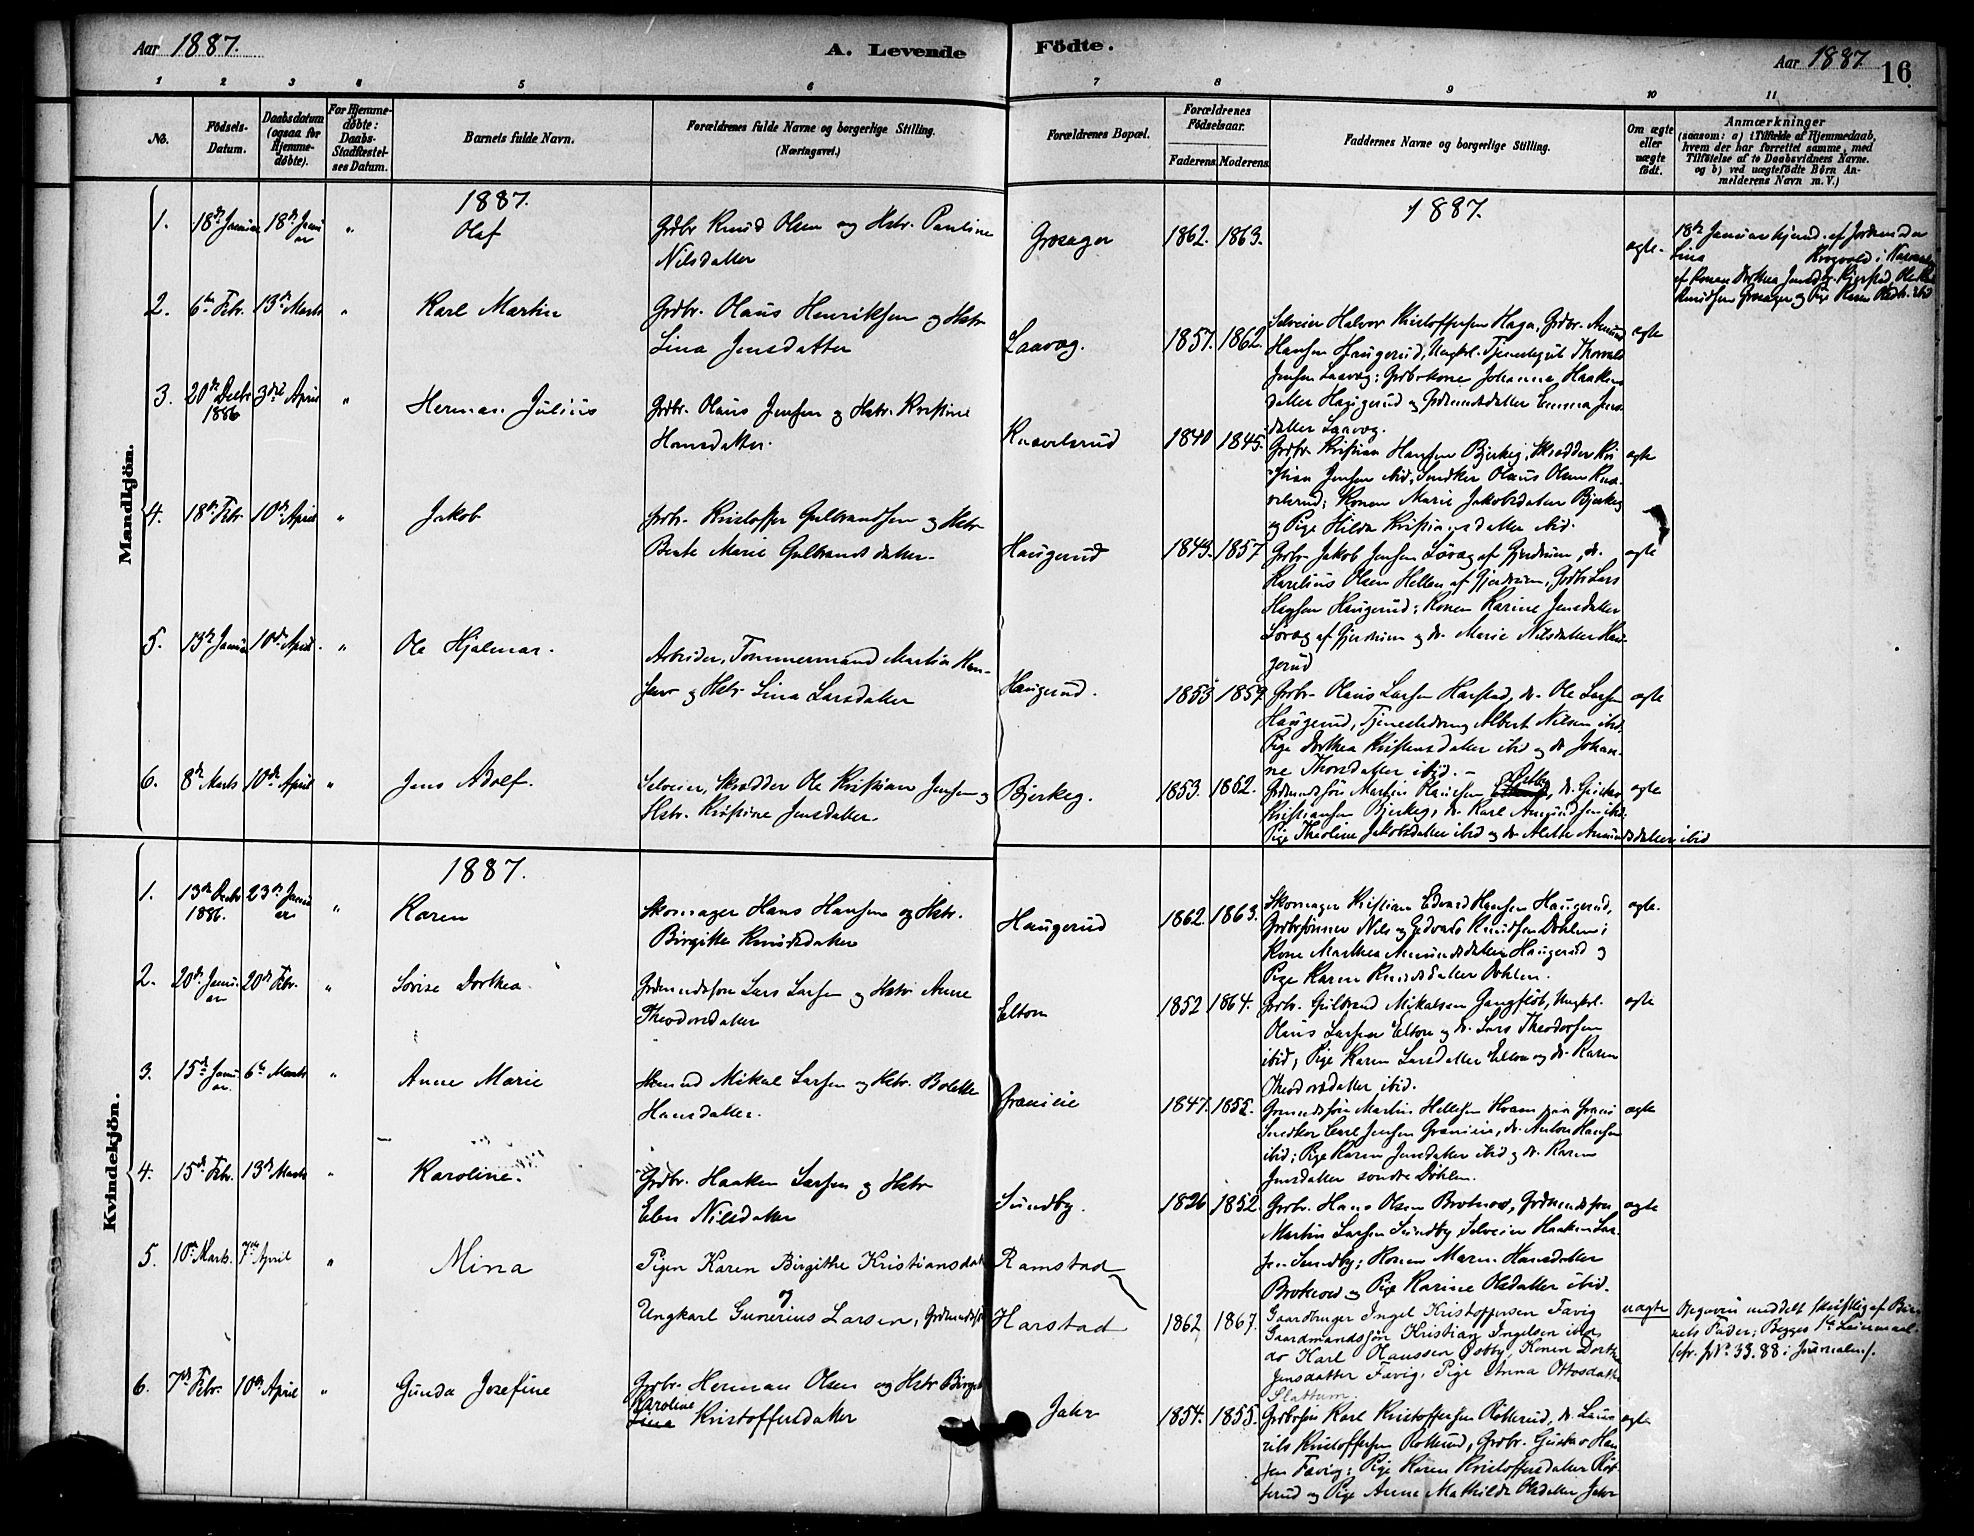 Aar 1887. A. Levende Födte. Aar 1887. 16.
1 2 3 4 5 6 7 8 9 10 11
No. Födsels-Datum. Daabsdatum (ogsaa for Hjemme-döbte). For Hjemme-döbte: Daabs-Stadfæstel-ses Datum. Barnets fulde Navn. Forældrenes fulde Navne og borgerlige Stilling. (Næringsvei.) Forældrenes Bopæl. Forældrenes Födselsaar. Faderens. Moderens. Faddernes Navne og borgerlige Stilling. Om ægte eller uægte födt. Anmærkninger (saasom: a) i Tilfælde af Hjemmedaab, hvem der har forrettet samme, med Tilföielse af to Daabsvidners Navne. og b) ved uægtefödte Börn An-melderens Navn m. V.)
Mandkjön.
1887. 1887.
1. 18de Januar 18de Janu
ar " Olaf Grdbr Knud Olsen og Hstr. Pauline
Nilsdatter Grosager 1862. 1863. ægte. 18de Januar hjemd. af Jordemoder
Lina
af Konen Dorthea
Knudsen Grosager og Pige Karen
2. 6te Febr. 13de Marts " Karl Martin Grdbr. Olaus Henriksen og Hstr
Lina Jensdatter Laavag. 1857. 1862. Selveier Halvor Kristoffersen Haga, Grdbr. Amund
Hansen Haugerud, Ungkl. Tjenestegut Thorvald
Jensen Laavag; Grdbrkone Johanne Haakens
datter Haugerud og Grdmandsdatter Emma Jens
datter Laavag.
3. 20de Decbr
1886 3die April " Herman Julius Grdbr. Olaus Jensen og Hstr. Kristine
Hansdatter. Knavelsrud 1840 1845. Grdbr. Kristian Hansen Bjerkeg, Skrædder Kri
stian Jensen ibid, Snedker Olaus Olsen Kna-
velsrud; Konen Marie Jakobsdatter Bjerkeg
og Pige Hilda Kristiansdatter ibid.
4. 18de Febr. 10de April " Jakob Grdbr. Kristoffer Gulbrandsen og Hstr
Beate Marie Gulbrandsdatter. Haugerud 1843. 1857 Grdbr. Jakob Jensen Lövag af Gjerdrum, do.
Karelius Olsen Hellen af Gjerdrum, Grdbr Lars
Hansen Haugerud; Konen Karine Jensdatter
Lövag af Gjerdrum og do. Marie Nilsdatter Hau
gerud ægte
5. 13de Januar 10de April. " Ole Hjalmar. Arbeider, Tømmermand Martin Han-
sen og Hstr Lina Larsdatter Haugerud. 1853 1859 Grdbr. Olaus Larsen Harstad, do. Ole Larsen
Haugerud, Tjenestedreng Albert Nilsen ibid.
Pige Dorthea Kristensdatter ibid og do Johan-
ne Thorsdatter ibid. ægte
6. 8de Marts 10de April " Jens Adolf. Selveier, Skrædder Ole Kristian Jensen og
Hstr. Kristine Jensdatter. Bjerkeg. 1853. 1862. Grdmandssön Martin Hansen, do. Gustav
Kristiansen Bjerkeg, do. Karl Amundsen ibid.
Pige Theoline Jakobsdatter ibid og do Alette Amundsdatter ibid ægte
Kvindekjön.
1887.
1. 13de Decbr
1886. 23de Janu
ar " Karen Skomager Hans Hansen og Hstr.
Birgitte Knudsdatter Haugerud 1862. 1863. Skomager Kristian Edvard Hansen Haugerud,
Grdbrsönner Nils og Edvard Knudsen Döhlen;
Kone Marthea Amundsdatter Haugerud og
Pige Karen Knudsdatter Döhlen. ægte.
2. 20de Janu
ar 20de Febr. " Lovise Dorthea Grdmandssön Lars Larsen og Hstr Anne
Theodorsdatter Elton 1852 1864. Grdbr. Gulbrand Mikalsen Gangflöt, Ungkl.
Olaus Larsen Elton og do. Lars Theodorsen
ibid; Pige Karen Larsdatter Elton og do. Karen
Theodorsdatter ibid. ægte
3. 15de Janu
ar. 6te Marts " Anne Marie Husmd Mikal Larsen og Hstr. Bolette
Hansdatter. Granieie 1847. 1855. Grdmandssön Martin Hellesen Hvam
Snedker Carl Jensen Granieie, do. Anton Hansen
ibid; Pige Karen Jensdatter ibid og do. Karen
Jensdatter söndre Döhlen. ægte
4. 15de Febr. 13de Marts " Karoline. Grdbr. Haaken Larsen og Hstr
Elen Nilsdatter Sundby. 1826 1852. Grdbr. Hans Olsen Brotnov, Grdmandssön
Martin Larsen Sundby, Selveier Haaken Lar-
sen Sundby; Konen Maren Hansdatter
Brotnov og Pige Karine Olsdatter ibid. ægte
5. 10de Marts. 7de April " Mina Pigen Karen Birgithe Kristiansdatter
og
Ungkarl Gunerius Larsen, Grdmandssön Ramstad
Harstad 1862 1867. Gaardbruger Ingel Kristoffersen Favig
Gaardmandssön Kristian Ingelsen ibid.
do Karl Hanssen Östby, Konen Dorthe
Jensdatter Favig, Pige Anna Ottosdatter
Slattum. uægte Opgaven meddelt skriftlig af Bar
nets Fader; Begges 1ste Leiermaal.
(cfr. JNo. 33. 88 i Journalen).
6. 7de Febr. 10de April " Gunda Josefine Grdbr. Herman Olsen og Hstr
Karoline
Lina Kristoffersdatter Jahr 1854. 1855. Grdbrsön Karl Kristoffersen Rötterud, do. Lau
rits Kristoffersen Rotterud, Grdbr. Gustav Han
sen Favig; Pige Karen Kristoffersdatter Röt-
terud og Pige Anne Mathilde Olsdatter Jahr ægte